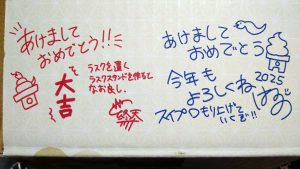 あけまして
おめでとう!!
大吉
ラスクを置く
ラスクスタンドを作ると
なお良し。
あけまして
おめでとう
今年も
よろしくね
2025
スイプロもり上げて
いくぞ!!